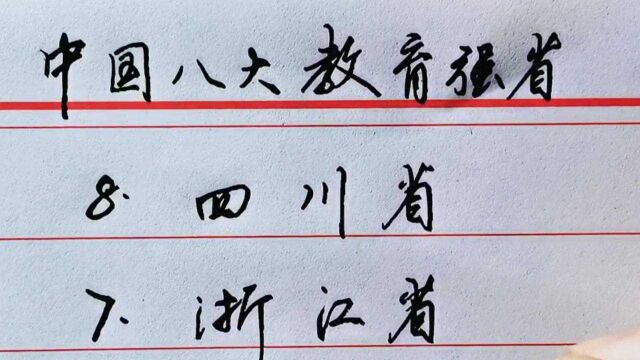 中国八大教育强省
8. 四川省
7. 浙江省